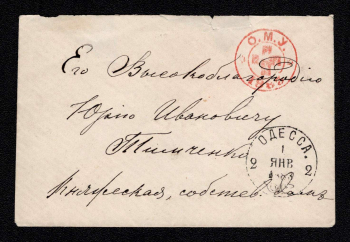 О.М.У.
Его Высокоблагородію
Юрію Ивановичу
Тимченко
ОДЕССА.
1
ЯНВ.
2 2
Княжеская, собств. домъ